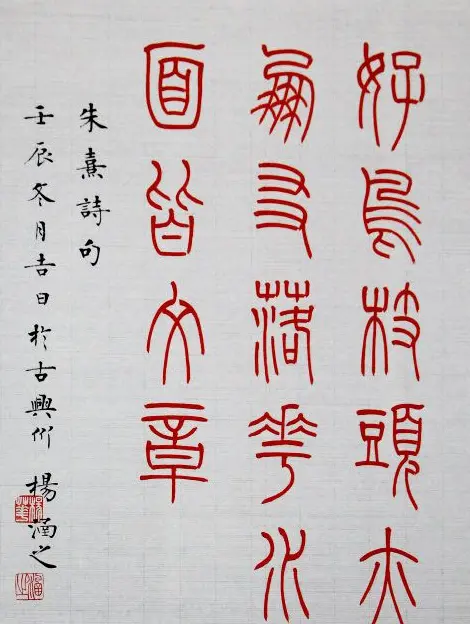 好鳥枝頭亦
朋友落花水
面皆文章
朱熹詩句
壬辰冬月吉日於古興州 楊涵之